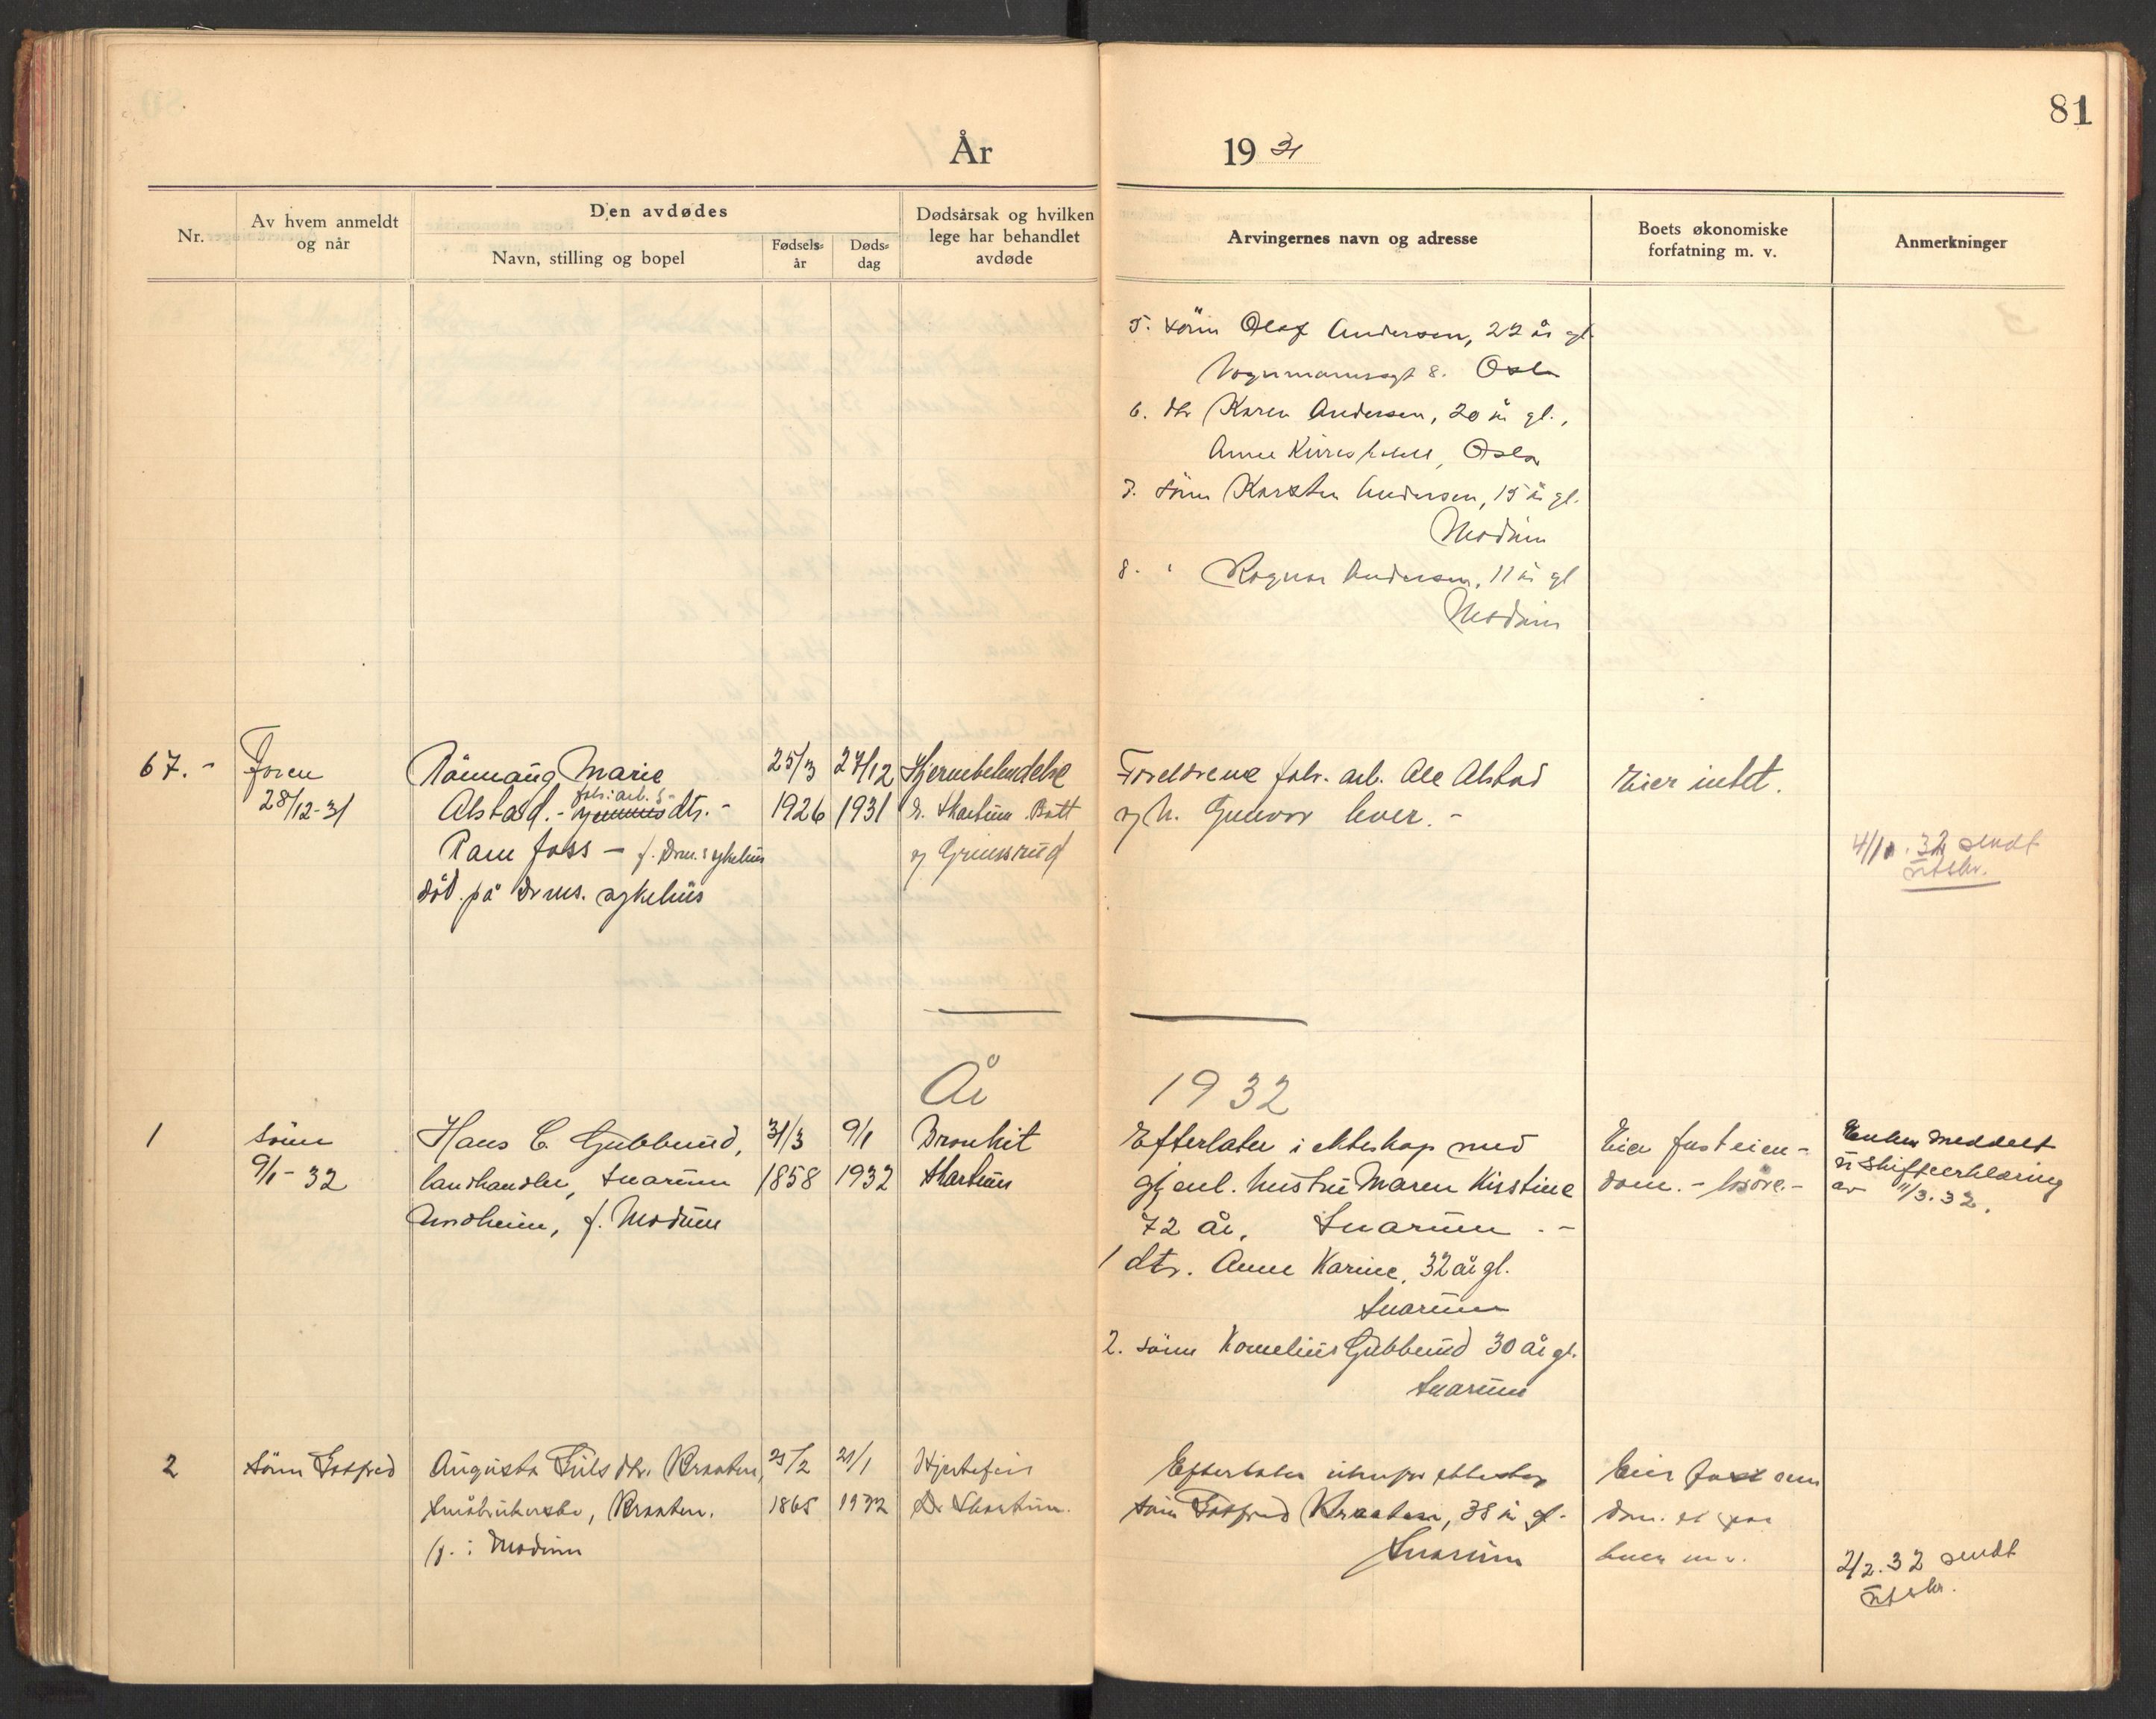 81
År 19 31
Nr.
Av hvem anmeldt
og når
Den avdødes
Navn, stilling og bopel
Fødsels-
år
Døds-
dag
Dødsårsak og hvilken
lege har behandlet
avdøde
Arvingernes navn og adresse
Boets økonomiske
forfatning m. v.
Anmerkninger
5. sönn Olaf Andersen, 22 år gl.
Vognmannsgt 8. Oslo
6. dtr Karen Andersen, 20 år gl.,
Anne Oslo
7. sönn Karsten Andersen, 15 år gl.
Modum
8. " Ragnar Andersen, 11 år gl
Modum
67. -
Faren
28/12-31
Rönnaug Marie
Alstad. - fabr: arb. dtr. -
Ram foss - f. Drm. sykehus
död på Drms. sykehus
25/3
1926
27/12
1931
Hjernebetendelse
dr. Skartum. Bøtt
og Grimsrud
Foreldrene fabr. arb. Ole Alstad
og h. Gunvor lever. -
Eier intet.
4/1 . 32 sendt
utskr.
År 1932
1
sönn
9/1 - 32
Hans C. Gubberud,
landhandler, Snarum
f. Modum
31/3
1858
9/1
1932
Bronkit
Skartum
Efterlater i ekteskap med
gjenl. hustru Maren Kirstine
72 år, Snarum. -
1 dtr. Anne Karine, 32 år gl.
Snarum
2. sönn Kornelius Gubberud 30 år gl.
Snarum
Eier fast eien-
dom. - lösöre. -
Enken meddelt
ui skifteerklæring
av 11/3. 32.
2
sönn Gotfred
Augusta Juls dtr. Braaten,
Småbrukerske, Braaten.
f. i Modum
25/2
1865
21/1
1932
Hjertefeil
Dr Skartum.
Efterlater utenfor ekteskap
sönn Gotfred Braaten, 38 år gl.
Snarum
Eier fast eien
dom. et par
kuer m v.
2/2. 32 sendt
utskr.